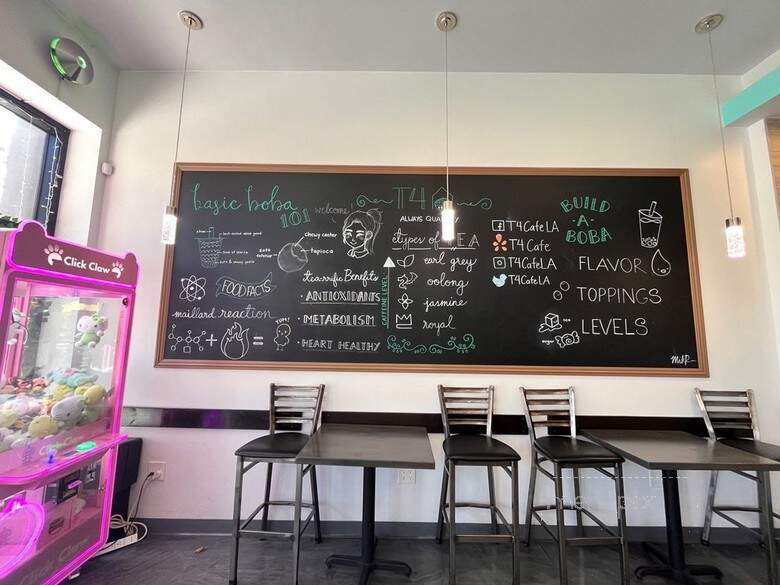 basic boba
101
welcome
soft
exterior
chewy center
tapioca
FOOD FACTS
maillard reaction
+
=
YUM!
tea-rrific Benefits
• ANTIOXIDANTS
• METABOLISM
• HEART HEALTHY
T4
ALWAYS
types of TEA
CAFFEINE LEVEL
earl grey
oolong
jasmine
royal
T4CafeLA
T4 Cafe
T4CafeLA
T4CafeLA
BUILD
-A-
BOBA
FLAVOR
TOPPINGS
ice
sugar
LEVELS
Click Claw
Click Claw